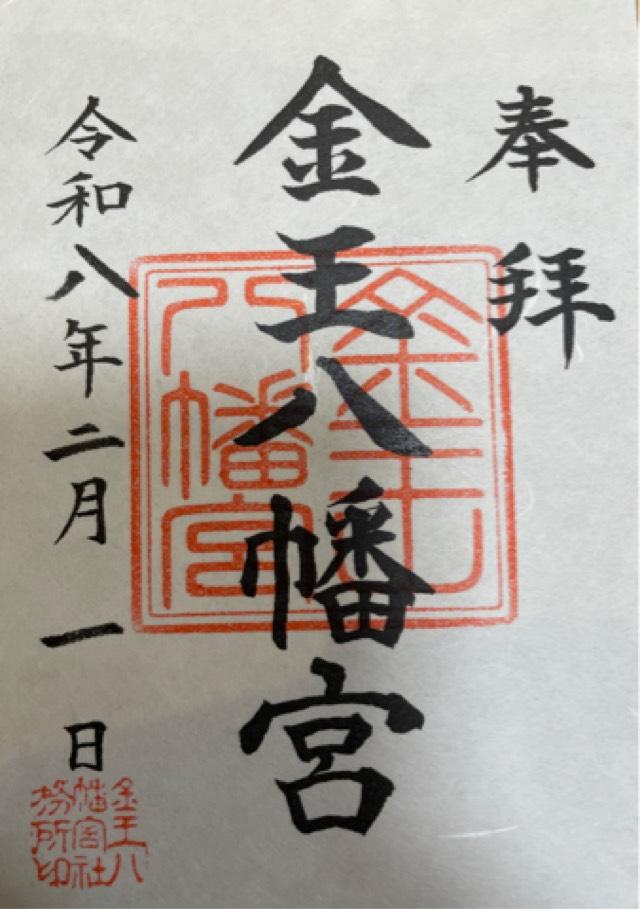 奉拝
金王八幡宮
令和八年二月一日
金王八幡宮
金王八幡宮社務所印